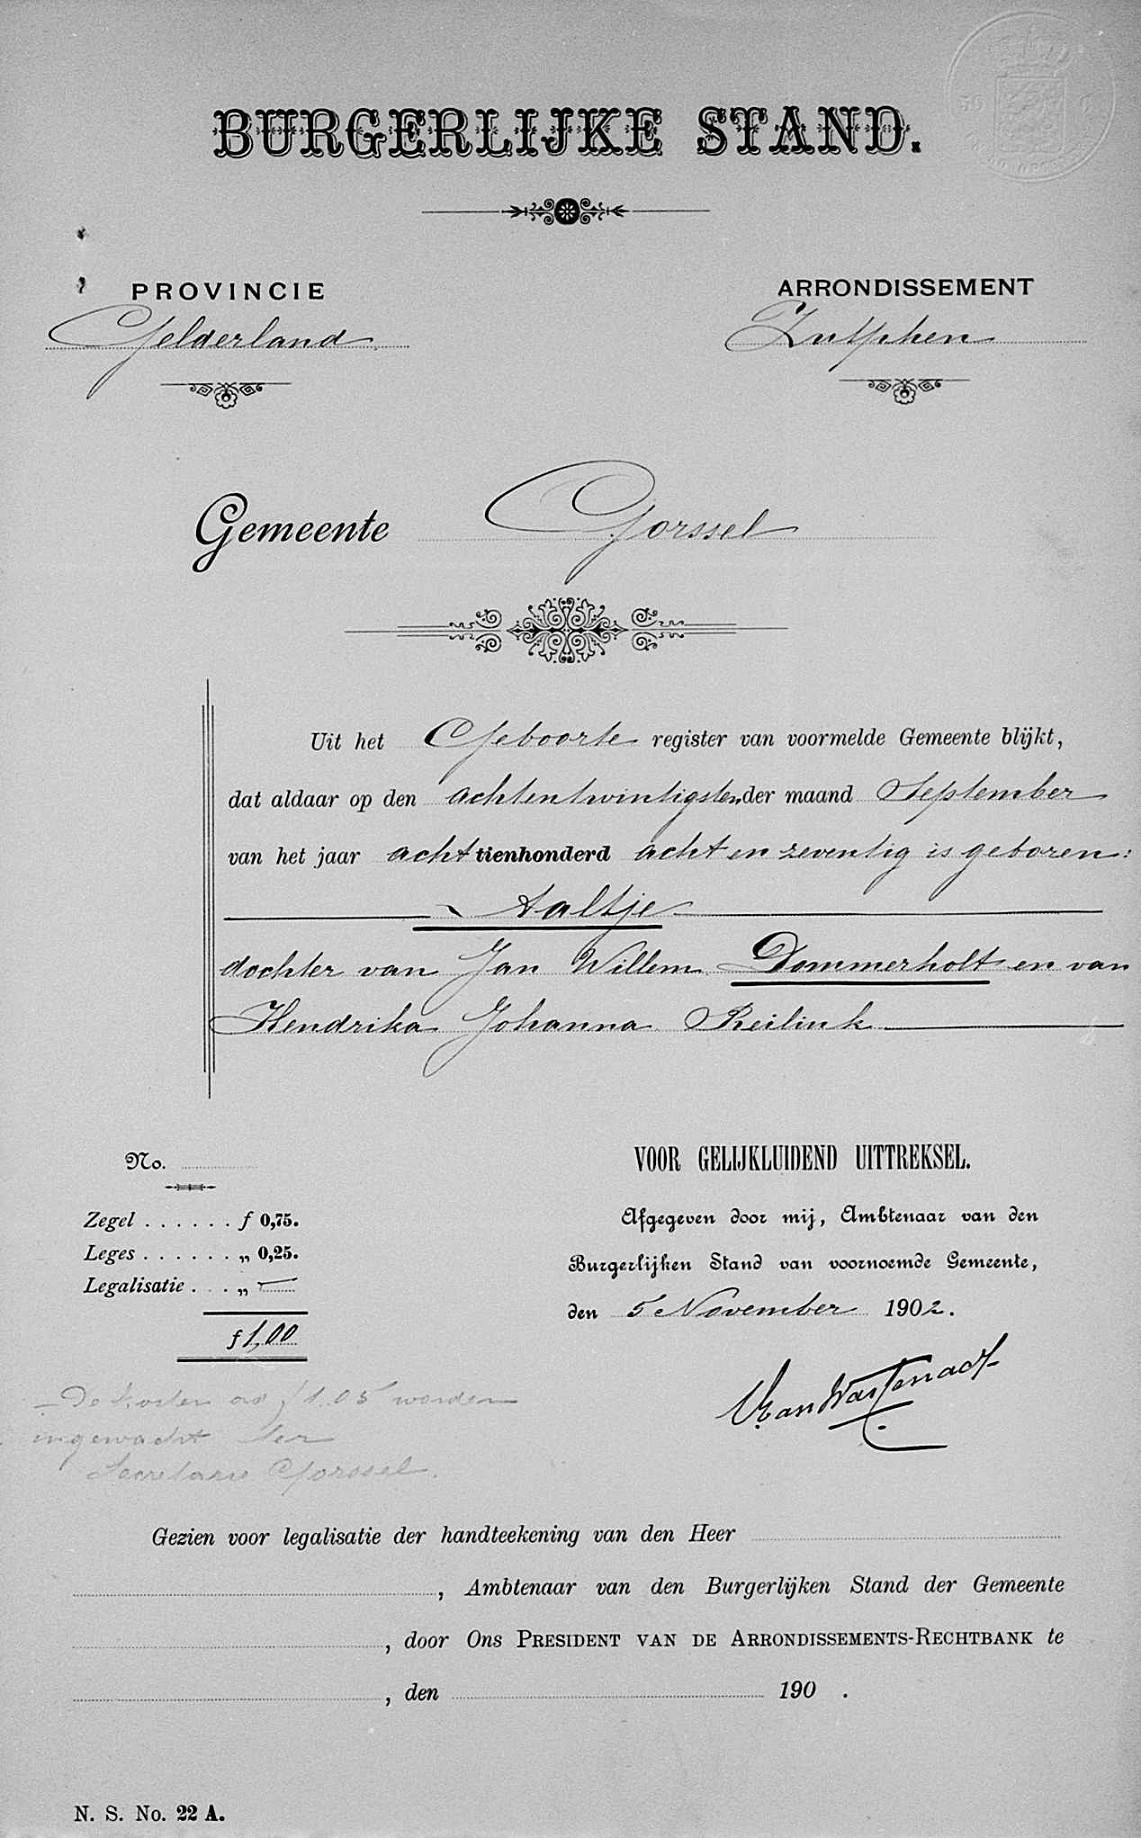 BURGERLIJKE STAND.
PROVINCIE
Gelderland
ARRONDISSEMENT
Zutphen
Gemeente Gorssel
Uit het Geboorte register van voormelde Gemeente blijkt,
dat aldaar op den achtentwintigsten der maand September
van het jaar acht tienhonderd acht en zeventig is geboren:
Aaltje
dochter van Jan Willem Dommerholt en van
Hendrika Johanna Reilink
No.
Zegel . . . . . . f 0,75.
Leges . . . . . . „ 0,25.
Legalisatie . . . „ —
f 1,00
De kosten ad f 1.05 worden
ingewacht ter
Secretarie Gorssel.
VOOR GELIJKLUIDEND UITTREKSEL.
Afgegeven door mij, Ambtenaar van den
Burgerlijken Stand van voornoemde Gemeente,
den 5 November 1902.
Gezien voor legalisatie der handteekening van den Heer
, Ambtenaar van den Burgerlijken Stand der Gemeente
, door Ons PRESIDENT VAN DE ARRONDISSEMENTS-RECHTBANK te
, den 190 .
N. S. No. 22 A.